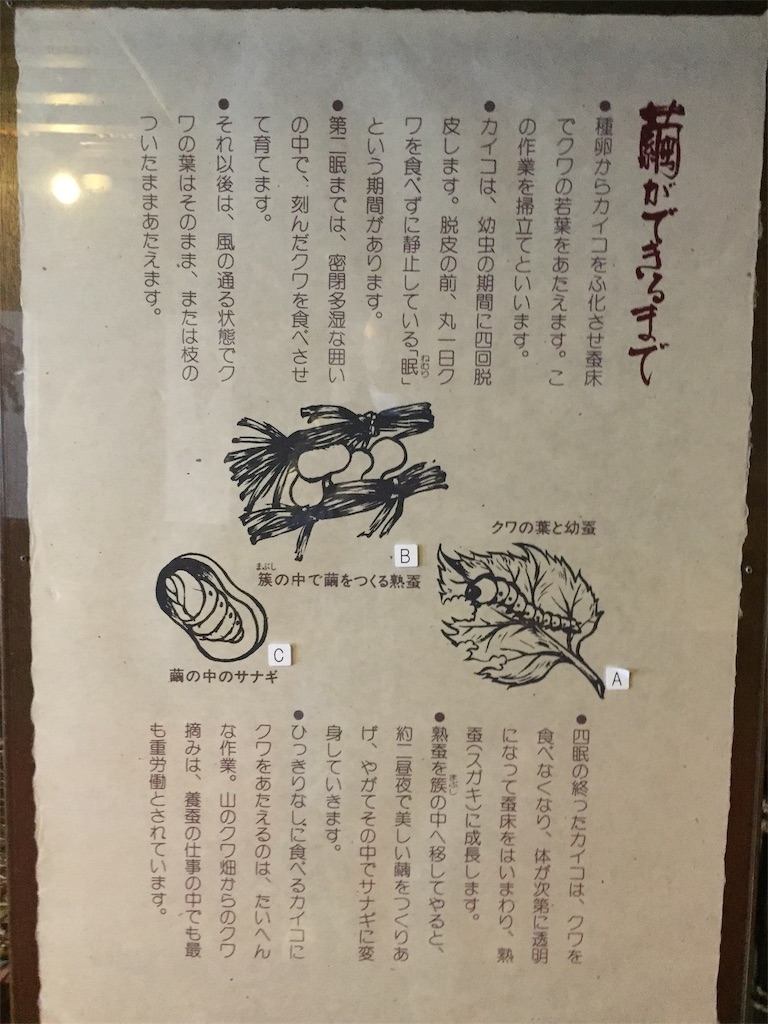 繭ができるまで
●種卵からカイコをふ化させ蚕床
でクワの若葉をあたえます。こ
の作業を掃立てといいます。
●カイコは、幼虫の期間に四回脱
皮します。脱皮の前、丸一日ク
ワを食べずに静止している「眠」
ねむり
という期間があります。
●第二眠までは、密閉多湿な囲い
の中で、刻んだクワを食べさせ
て育てます。
●それ以後は、風の通る状態でク
ワの葉はそのまま、または枝の
ついたままあたえます。
クワの葉と幼蚕
A
B
まぶし
簇の中で繭をつくる熟蚕
C
繭の中のサナギ
●四眠の終ったカイコは、クワを
食べなくなり、体が次第に透明
になって蚕床をはいまわり、熟
蚕(スガキ)に成長します。
●熟蚕を簇の中へ移してやると、
まぶし
約二昼夜で美しい繭をつくりあ
げ、やがてその中でサナギに変
身していきます。
●ひっきりなしに食べるカイコに
クワをあたえるのは、たいへん
な作業。山のクワ畑からのクワ
摘みは、養蚕の仕事の中でも最
も重労働とされています。